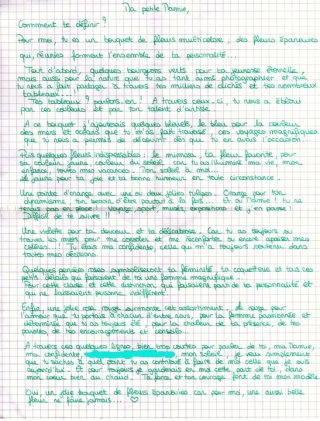 Ma petite Mamie,
Comment te définir ?
Pour moi, tu es un bouquet de fleurs multicolore, des fleurs épanouies
qui, réunies forment l'ensemble de ta personnalité...
Tout d'abord, quelques bourgeons verts pour ta jeunesse éternelle,
mais aussi pour la nature que tu as tant aimé photographier et que
tu nous a fait partager à travers tes milliers de clichés et tes nombreux
tableaux...
Tes tableaux ! parlons-en ! A travers ceux-ci, tu nous a ébloui
par ces couleurs et par ton talent d'artiste
A ce bouquet j'ajouterais quelques bleuets, le bleu pour la couleur
des mers et océans que tu m'as fait traversé, ces voyages magnifiques
que tu nous a permis de découvrir dès que tu en avais l'occasion
Puis quelques fleurs indispensables : le mimosa, ta fleur favorite pour
sa couleur jaune couleur du soleil car tu as illuminé ma vie, mon
enfance, toutes mes vacances. Mon soleil à moi.
Le jaune pour ta joie et ta bonne humeur en toute circonstance.
Une pointe d'orange avec une ou deux jolies tulipes. Orange pour ton
dynamisme, ton besoin d'être partout à la fois... Et oui Mamie ! tu ne
voyage, sport, musées, expositions et j'en passe !
Difficile de te suivre !!
Une violette pour ta douceur et ta délicatesse. Car tu as toujours su
trouver les mots pour me consoler et me réconforter ou encore apaiser mes
colères...! Tu étais ma confidente, celle qui m'a toujours soutenu dans
toutes mes décisions.
Quelques pensées roses symboliseront ta féminité ta coquetterie et tous ces
petits détails qui faisaient de toi une femme magnifique...
Pour cette classe et cette distinction qui faisaient parti de ta personnalité et
qui ne laissaient personne indifférent.
Enfin, une jolie rose rouge surmonte cet assortiment, le rouge pour
l'amour que tu portais à chacun d'entre nous, pour la femme passionnée et
déterminée que tu as toujours été pour la chaleur de ta présence, de tes
paroles, de tes encouragements et conseils.
A travers ces quelques lignes, bien trop courtes pour parler de toi, ma Mamie,
ma confidente, mon soleil, je veux simplement
que tu saches à quel point tu as contribué à faire de moi celle que je suis
aujourd'hui. Et pour toujours je garderais en moi cette part de toi, dans
mon coeur bien au chaud. Ta force et ton courage font de toi mon modèle.
Oui, un joli bouquet de fleurs épanouies car pour moi, une aussi belle
fleur ne fane jamais...